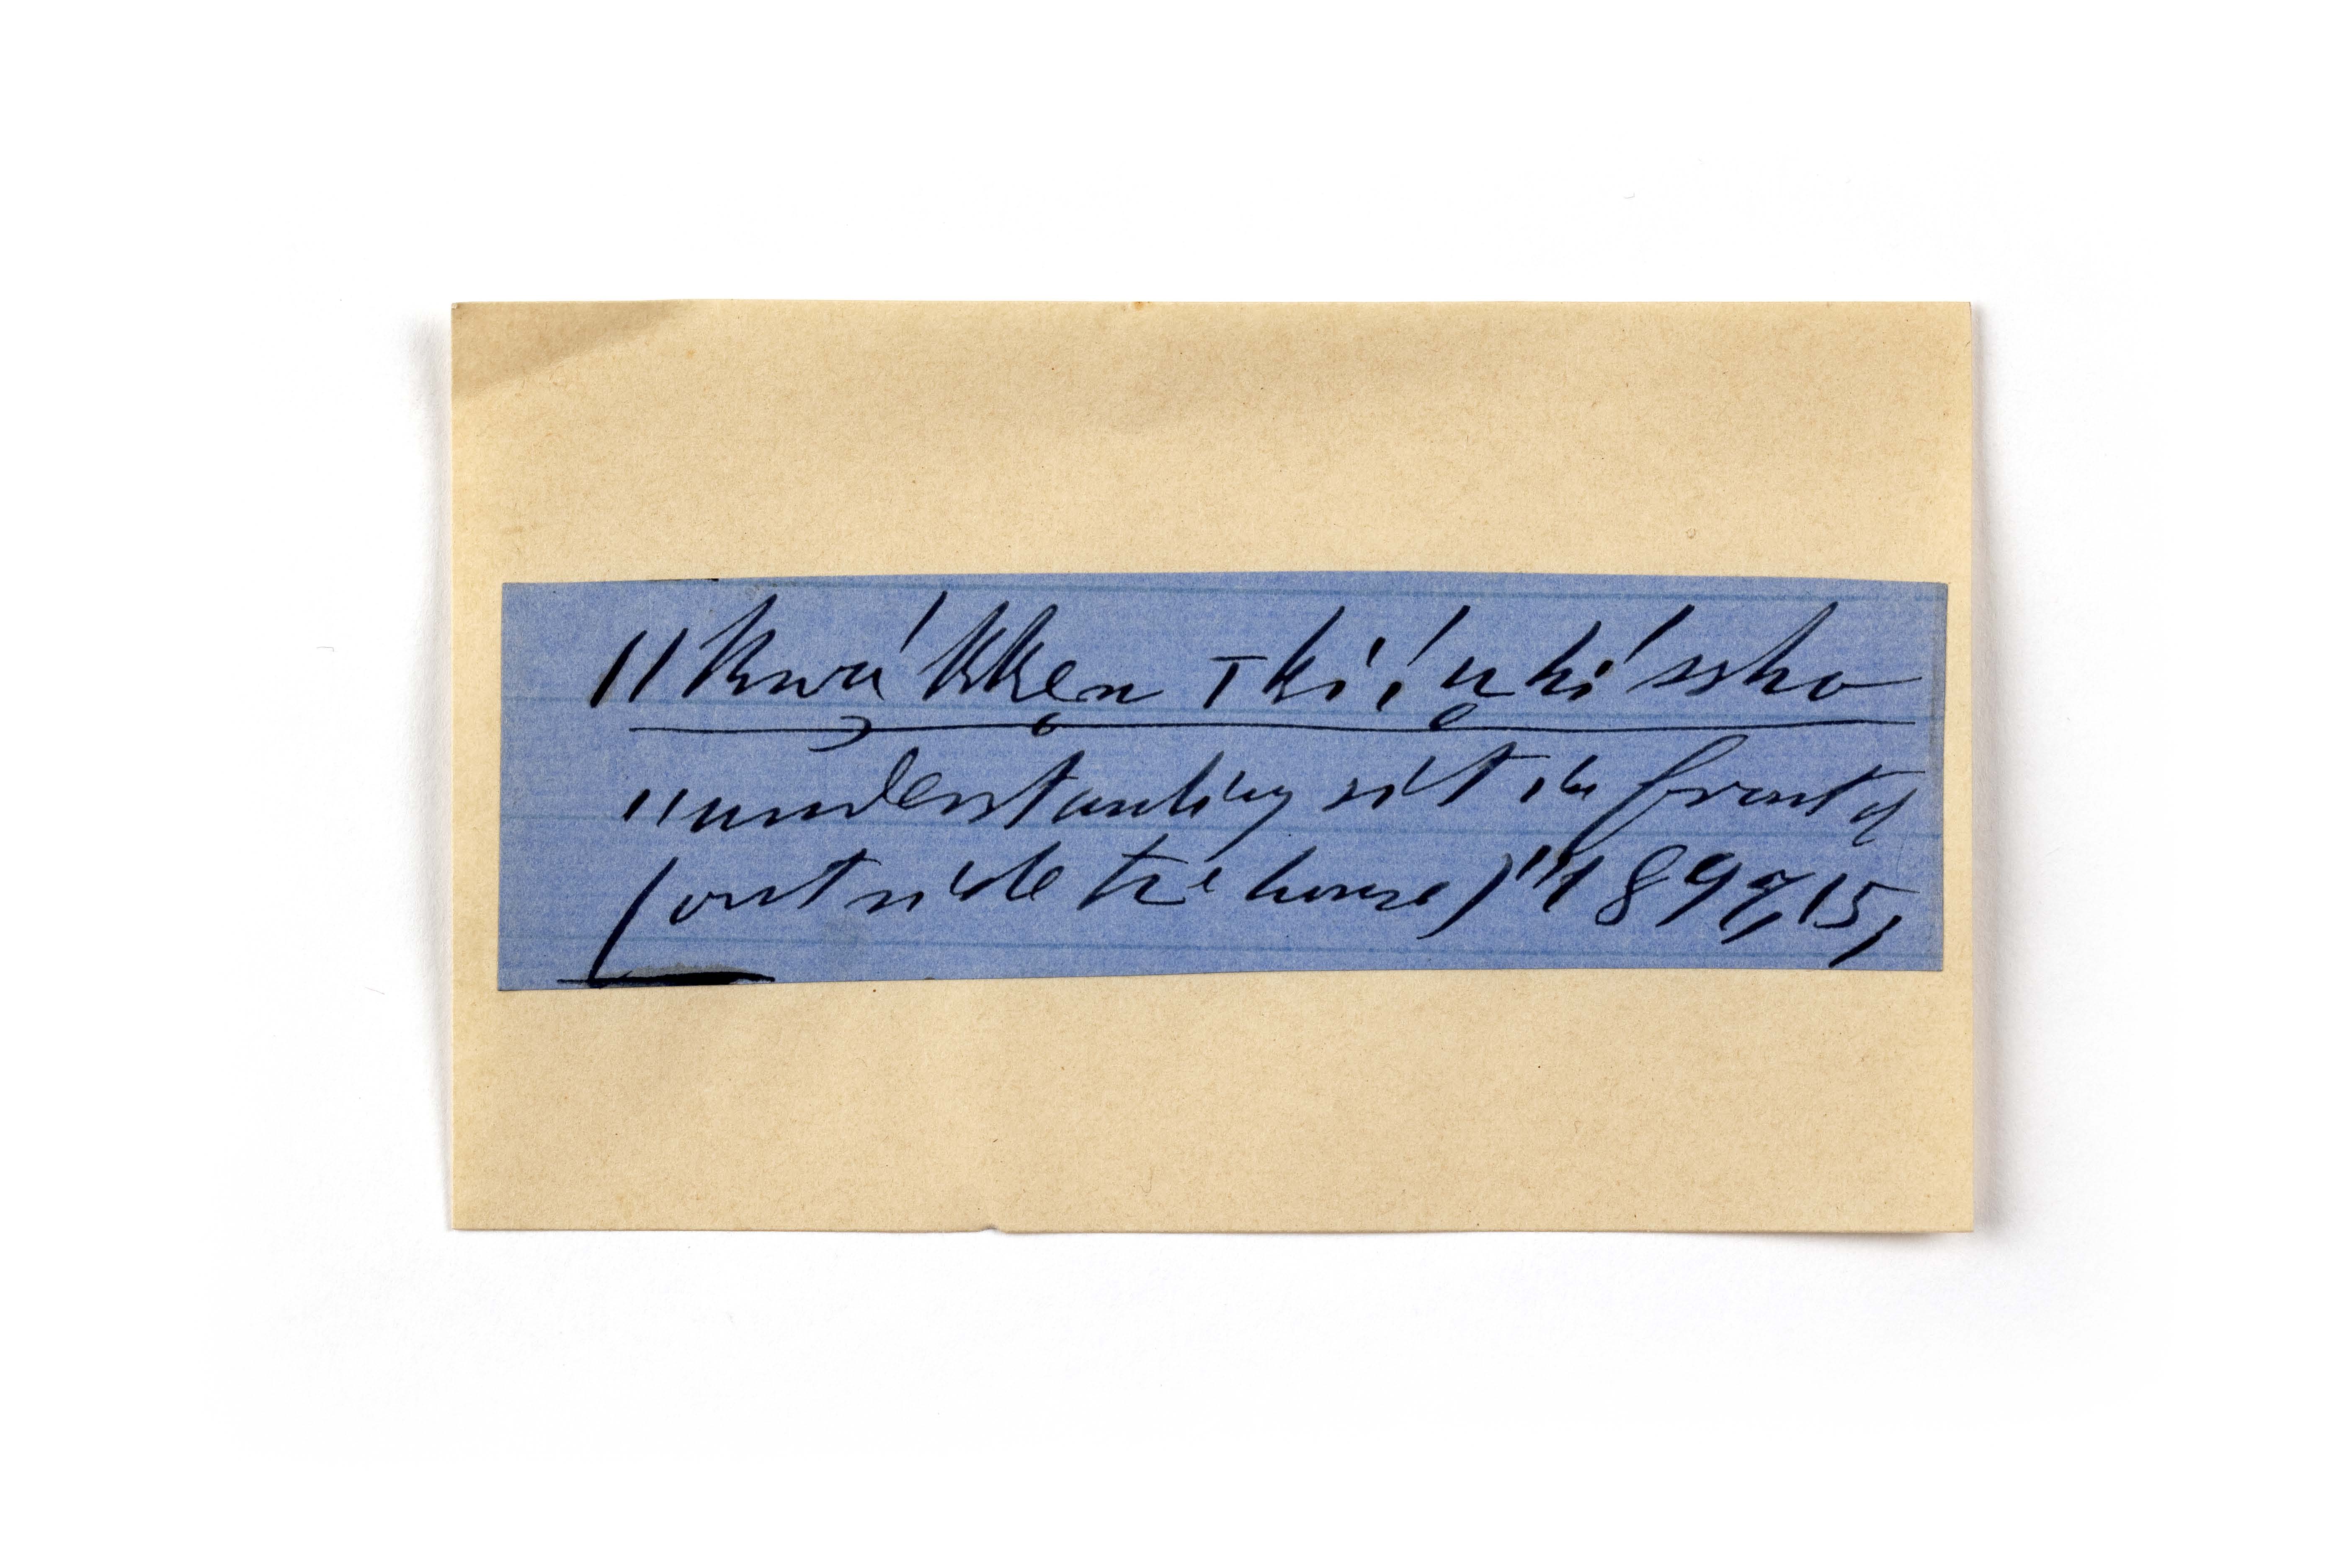 ǁkwá̱kke̥n ꞇkí, ǃu̥hí ssho
"understanding sit in front of
(outside the house)" 1897, 15,